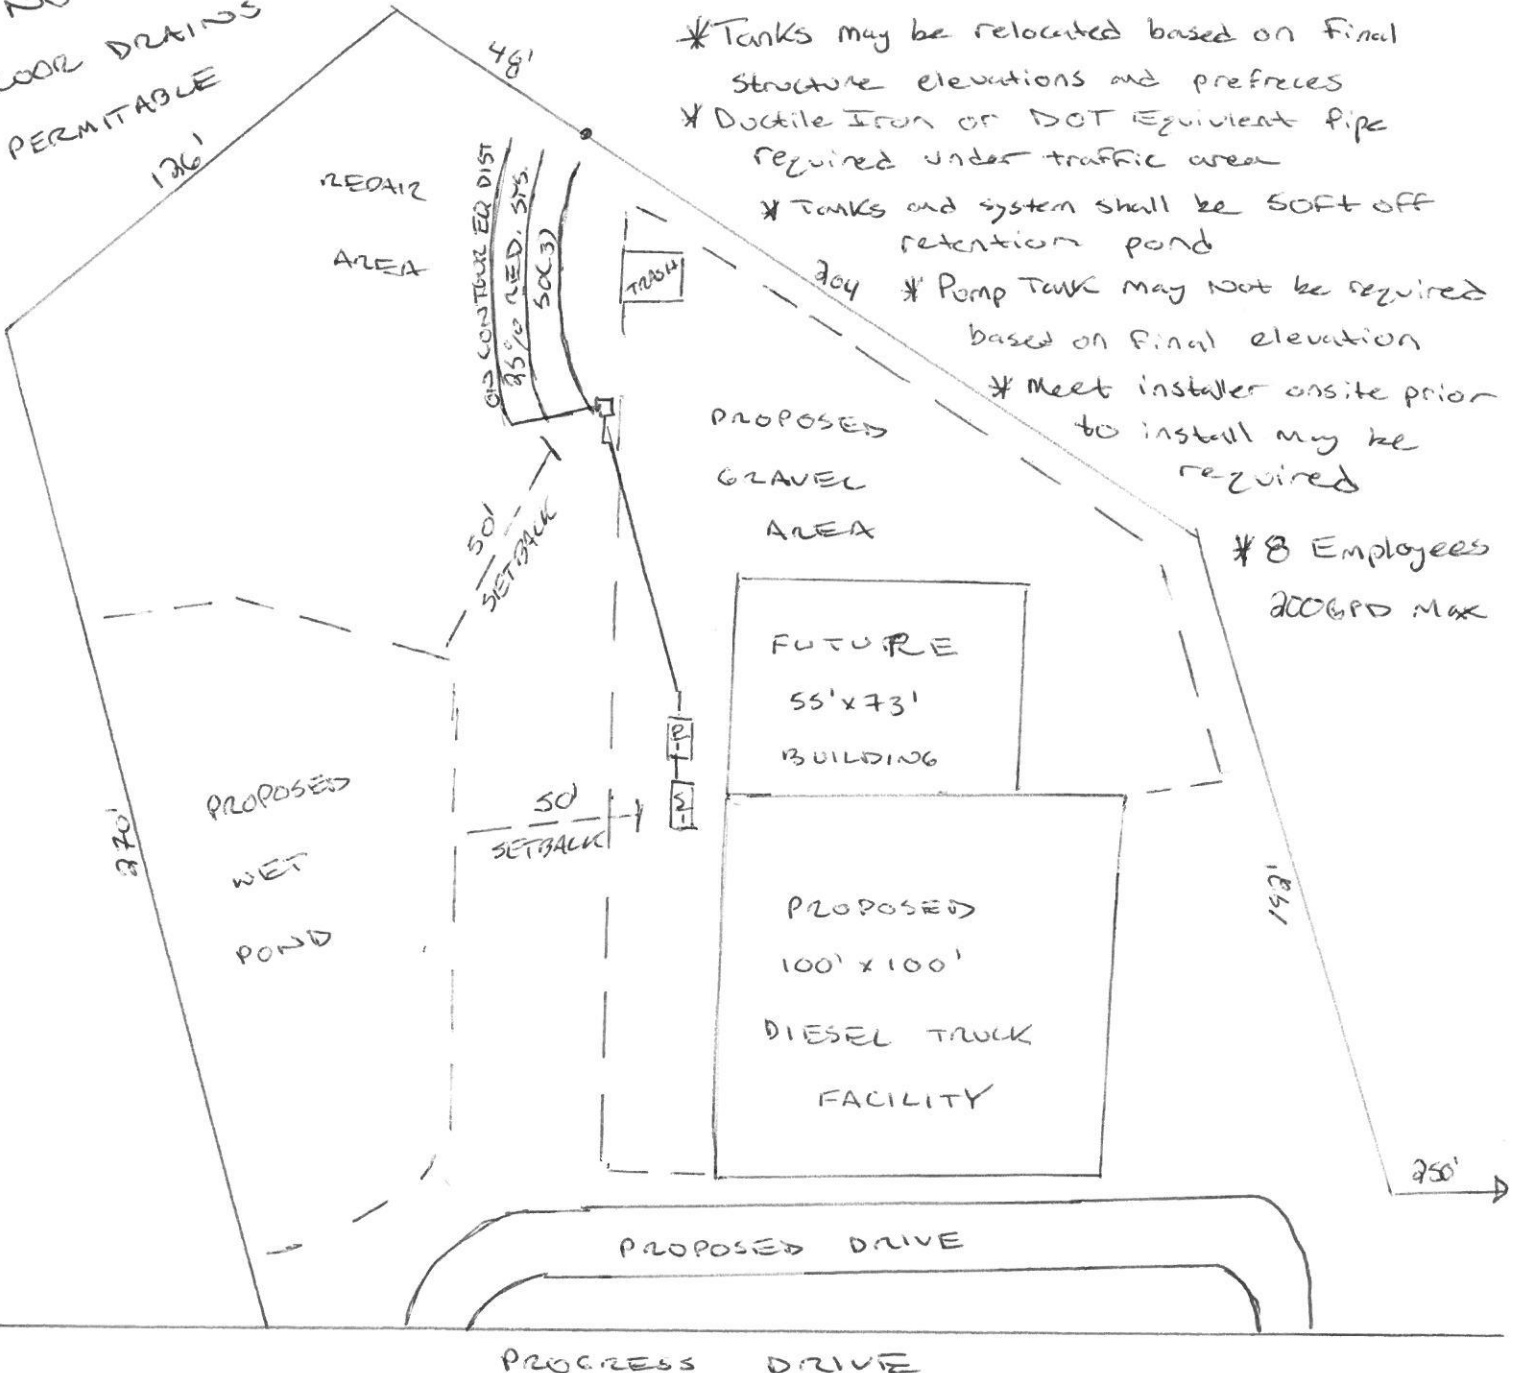 NO
FLOOR DRAINS
PERMITABLE
126'
48'
*Tanks may be relocated based on final
structure elevations and prefreces
* Ductile Iron or DOT Equivlent Pipe
required under traffic area
* Tanks and system shall be 50ft off
retention pond
* Pump Tank may Not be required
based on final elevation
* Meet installer onsite prior
to install may be
required
* 8 Employees
200GPD Max
REPAIR
AREA
ON CONTOUR EQ DIST
25% RED. SYS.
50(3)
TRASH
204
PROPOSED
GRAVEL
AREA
50'
SETBACK
FUTURE
55'x73'
BUILDING
P
S
50'
SETBACK
PROPOSED
WET
POND
270'
PROPOSED
100' x 100'
DIESEL TRUCK
FACILITY
148'
250'
PROPOSED DRIVE
PROGRESS DRIVE